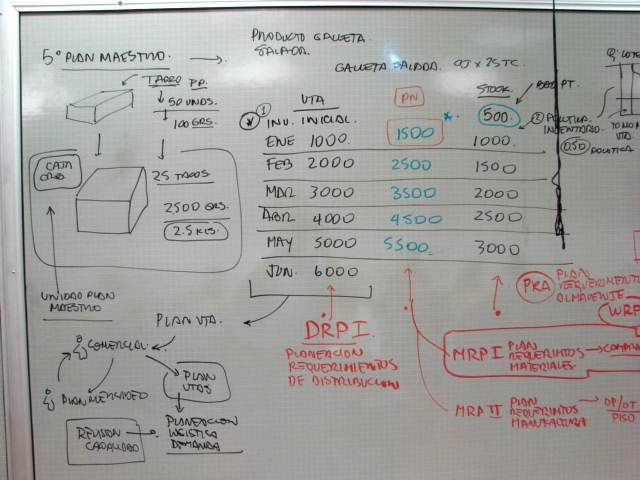 PRODUCTO GALLETA
SALADA.
5° PLAN MAESTRO. →
GALLETA SALADA. CJ X 25 TC.
TARRO PP.
50 UNDS.
100 GRS.
CAJA
25 TACOS
2500 GRS.
2.5 KLS.
UNIDAD PLAN
MAESTRO
VTA PN STOCK
PT.
* 1 INV. INICIAL * 500.
ENE 1000. 1500 1000.
FEB 2000 2500 1500
MAR 3000 3500 2000
ABR 4000 4500 2500
MAY 5000 5500. 3000
JUN. 6000
2 POLITICA
INVENTARIO.
0.50 POLITICA
VTA.
PLAN VTA.
COMERCIAL
PLAN MENSUAL
PLAN
VTAS
REVISION
CAPACIDAD
PLANEACION
LOGISTICA
DEMANDA
DRP I.
PLANEACION
REQUERIMIENTOS
DE DISTRIBUCION
PRA PLAN
REQUERIMIENTO
ALMACENTE
WRP
MRP I PLAN
REQUERIMTOS
MATERIALES. → COMPRA
MRP II PLAN
REQUERIMTOS
MANUFACTURA → OP/OT
PISO